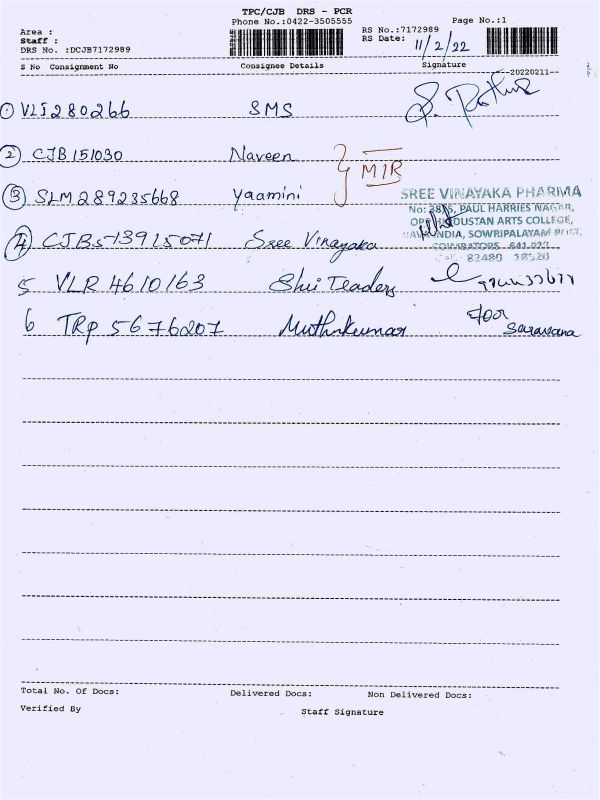 TPC/CJB DRS - PCR
Phone No.:0422-3505555
Page No.:1
Area :
Staff :
DRS No. :DCJB7172989
RS No.:7172989
RS Date: 11/2/22
S No Consignment No Consignee Details Signature
--20220211--
1 VLI280266 SMS
2 CJB151030 Naveen
MIR
3 SLM289235668 Yaamini
SREE VINAYAKA PHARMA
No: 38/5, PAUL HARRIES NAGAR,
OPP HINDUSTAN ARTS COLLEGE,
NAVAINDIA, SOWRIPALAYAM
COIMBATORE - 641
82480 18520
4 CJBS13915071 Sree Vinayaka
5 VLR4610163 Shri Teaders
6 TRP5676207 Muthukumar
Saravana
Total No. Of Docs: Delivered Docs: Non Delivered Docs:
Verified By Staff Signature